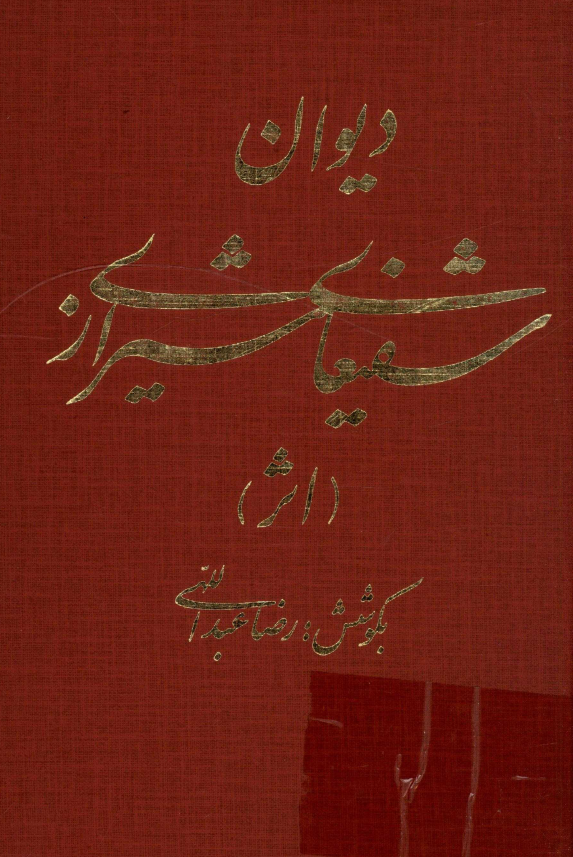 دیوان
شفیعای شیرازی
(اثر)
بکوشش: رضا عبداللهی